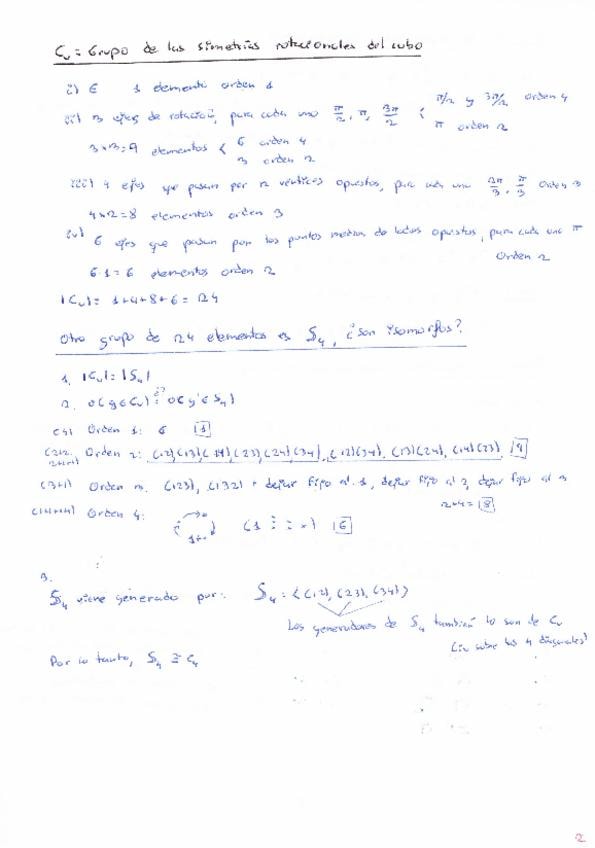 Cu = Grupo de las simetrías rotacionales del cubo
i) e 1 elemento orden 1
ii) 3 ejes de rotación, para cada uno π/2, π, 3π/2 < π/2 y 3π/2 orden 4
π orden 2
3×3=9 elementos < 6 orden 4
3 orden 2
iii) 4 ejes que pasan por 2 vértices opuestos, para cada uno 2π/3, π/3 orden 3
4×2=8 elementos orden 3
iv) 6 ejes que pasan por los puntos medios de lados opuestos, para cada uno π
orden 2
6·1=6 elementos orden 2
|Cu| = 1+9+8+6 = 24
Otro grupo de 24 elementos es S4, ¿son isomorfos?
1. |Cu| = |S4|
2. o(g∈Cu) = o(g'∈S4)
Orden 1: e 1
Orden 2: (12)(13)(14)(23)(24)(34), (12)(34), (13)(24), (14)(23) 9
(3+1) Orden 3: (123), (132) + dejar fijo al 1, dejar fijo al 2, dejar fijo al 3
2×4=8
Orden 4: 6
3.
S4 viene generado por: S4 = ⟨(12), (23), (34)⟩
Los generadores de S4 también lo son de Cu
sobre las 4 diagonales)
Por lo tanto, S4 ≅ C4
2